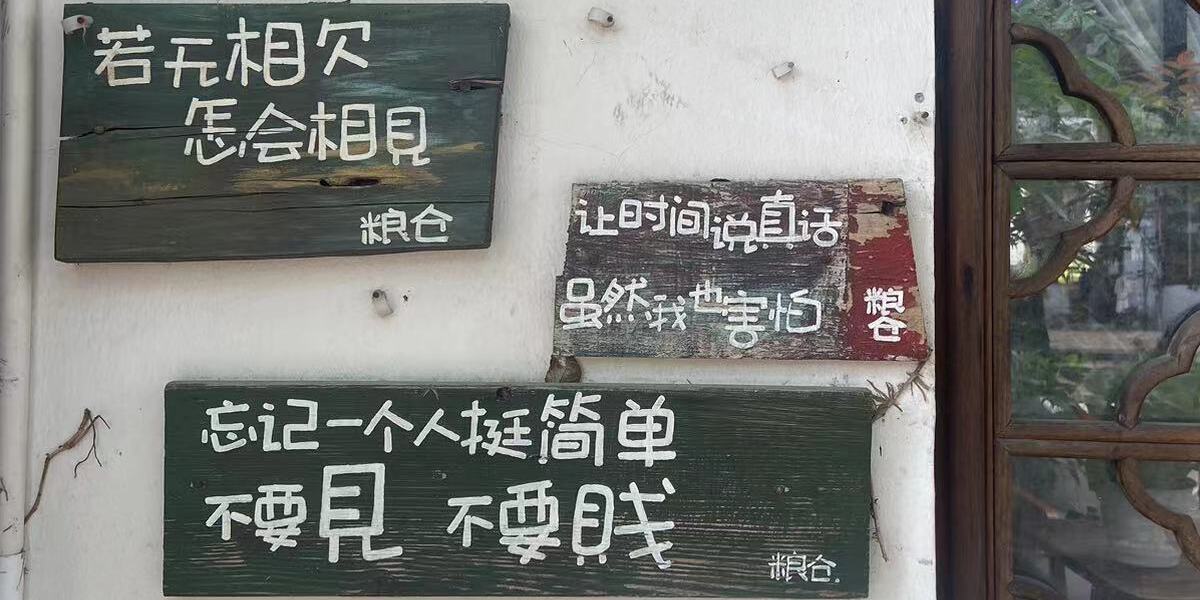 若无相欠
怎会相見
粮仓
让时间说真话
虽然我也害怕
粮仓
忘记一个人挺简单
不要見 不要賎
粮仓